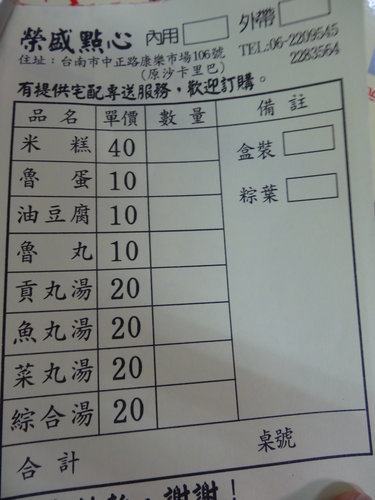 榮盛點心 內用 外帶
住址：台南市中正路康樂市場106號 TEL:06-2209545
（原沙卡里巴） 2283564
有提供宅配專送服務，歡迎訂購。
品名 單價 數量 備註
米糕 40
魯蛋 10
油豆腐 10
魯丸 10
貢丸湯 20
魚丸湯 20
菜丸湯 20
綜合湯 20
盒裝
粽葉
合計 桌號
謝謝！